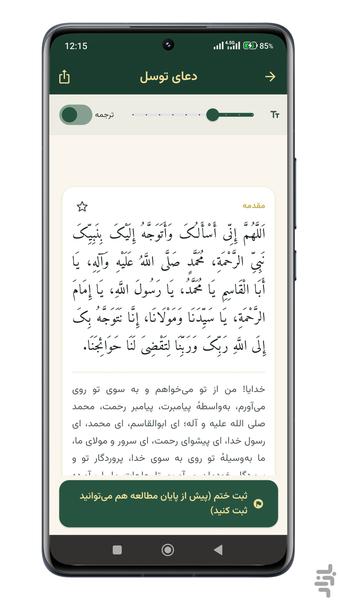 12:15
85%
دعای توسل
ترجمه
مقدمه
اَللَّهُمَّ إِنِّی أَسْأَلُکَ وَأَتَوَجَّهُ إِلَیْکَ بِنَبِیِّکَ
نَبِیِّ الرَّحْمَةِ، مُحَمَّدٍ صَلَّی اللَّهُ عَلَیْهِ وَآلِهِ، یَا
أَبَا الْقَاسِمِ یَا مُحَمَّدُ، یَا رَسُولَ اللَّهِ، یَا إِمَامَ
الرَّحْمَةِ، یَا سَیِّدَنَا وَمَوْلَانَا، إِنَّا نَتَوَجَّهُ بِکَ
إِلَی اللَّهِ رَبِّکَ وَرَبِّنَا لِتَقْضِیَ لَنَا حَوَائِجَنَا.
خدایا! من از تو می‌خواهم و به سوی تو روی
می‌آورم، به‌واسطهٔ پیامبرت، پیامبر رحمت، محمد
صلی الله علیه و آله؛ ای ابوالقاسم، ای محمد، ای
رسول خدا، ای پیشوای رحمت، ای سرور و مولای ما،
ما به‌وسیلهٔ تو روی به سوی خدا، پروردگار تو و
ثبت ختم (پیش از پایان مطالعه هم می‌توانید
ثبت کنید)
بازار